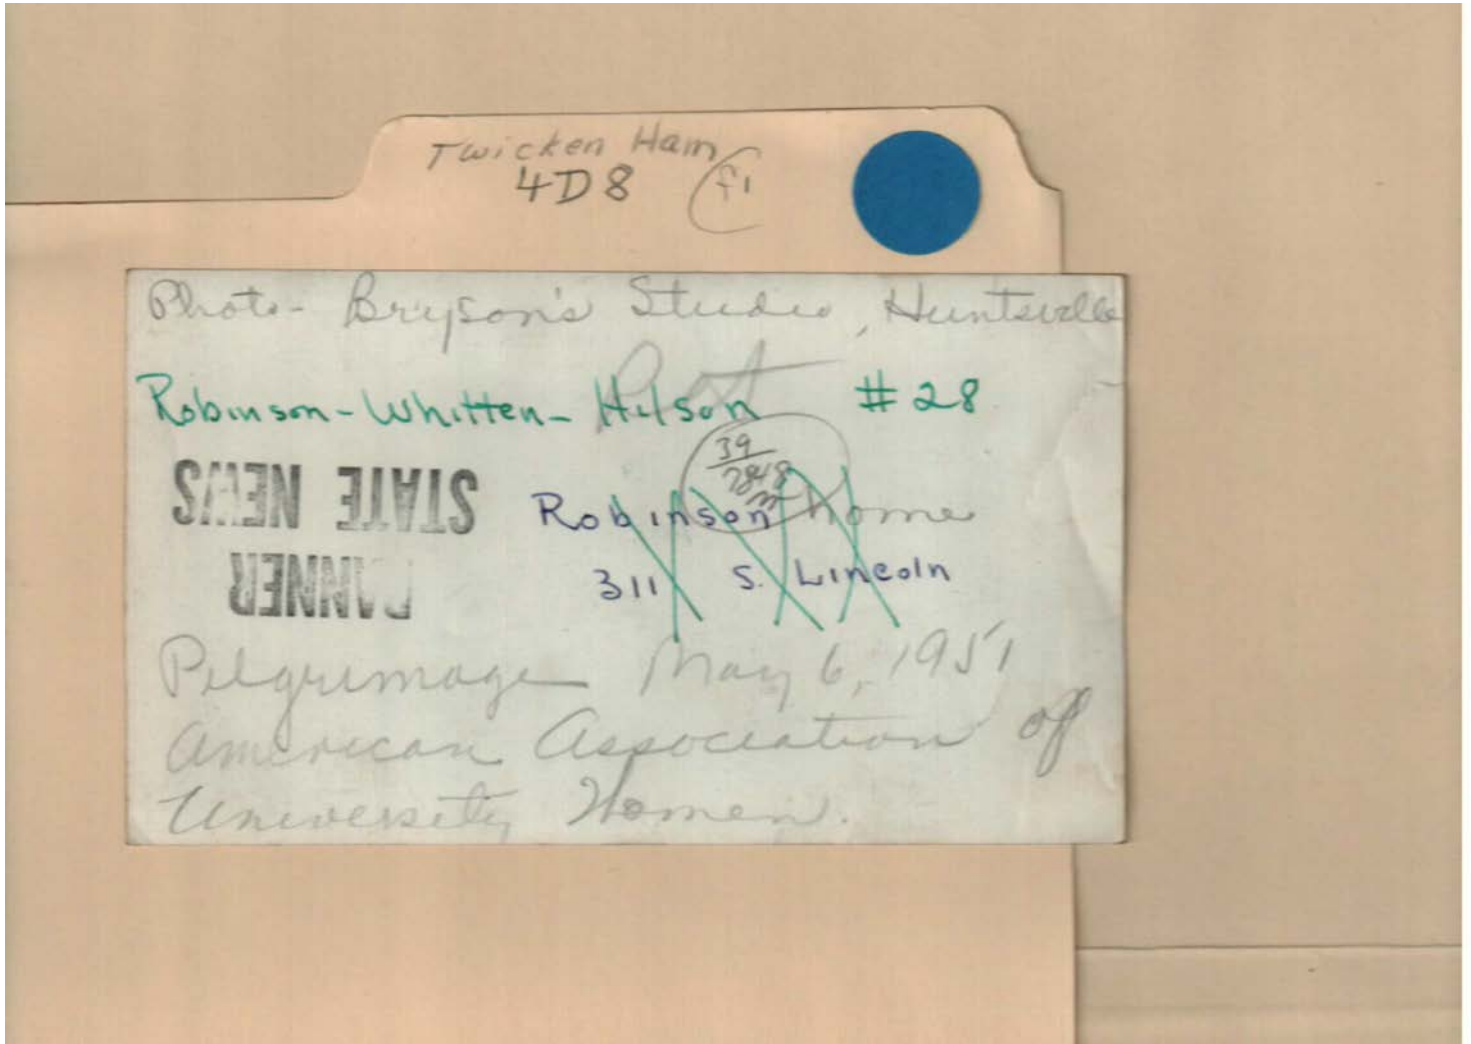 Twicken Ham
4D8 f1
Photo - Bryson's Studio, Huntsville
Robinson-Whitten-Hilson #28
39
STATE NEWS
Robinson home
BANNER
311 S. Lincoln
Pilgrimage May 6, 1951
American Association of
University Women.